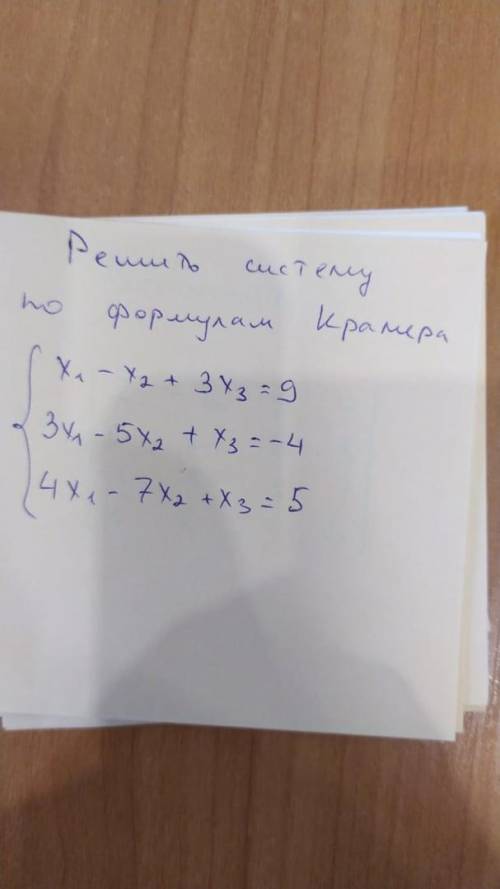 Решить систему
по формулам Крамера
x₁ - x₂ + 3x₃ = 9
3x₁ - 5x₂ + x₃ = -4
4x₁ - 7x₂ + x₃ = 5